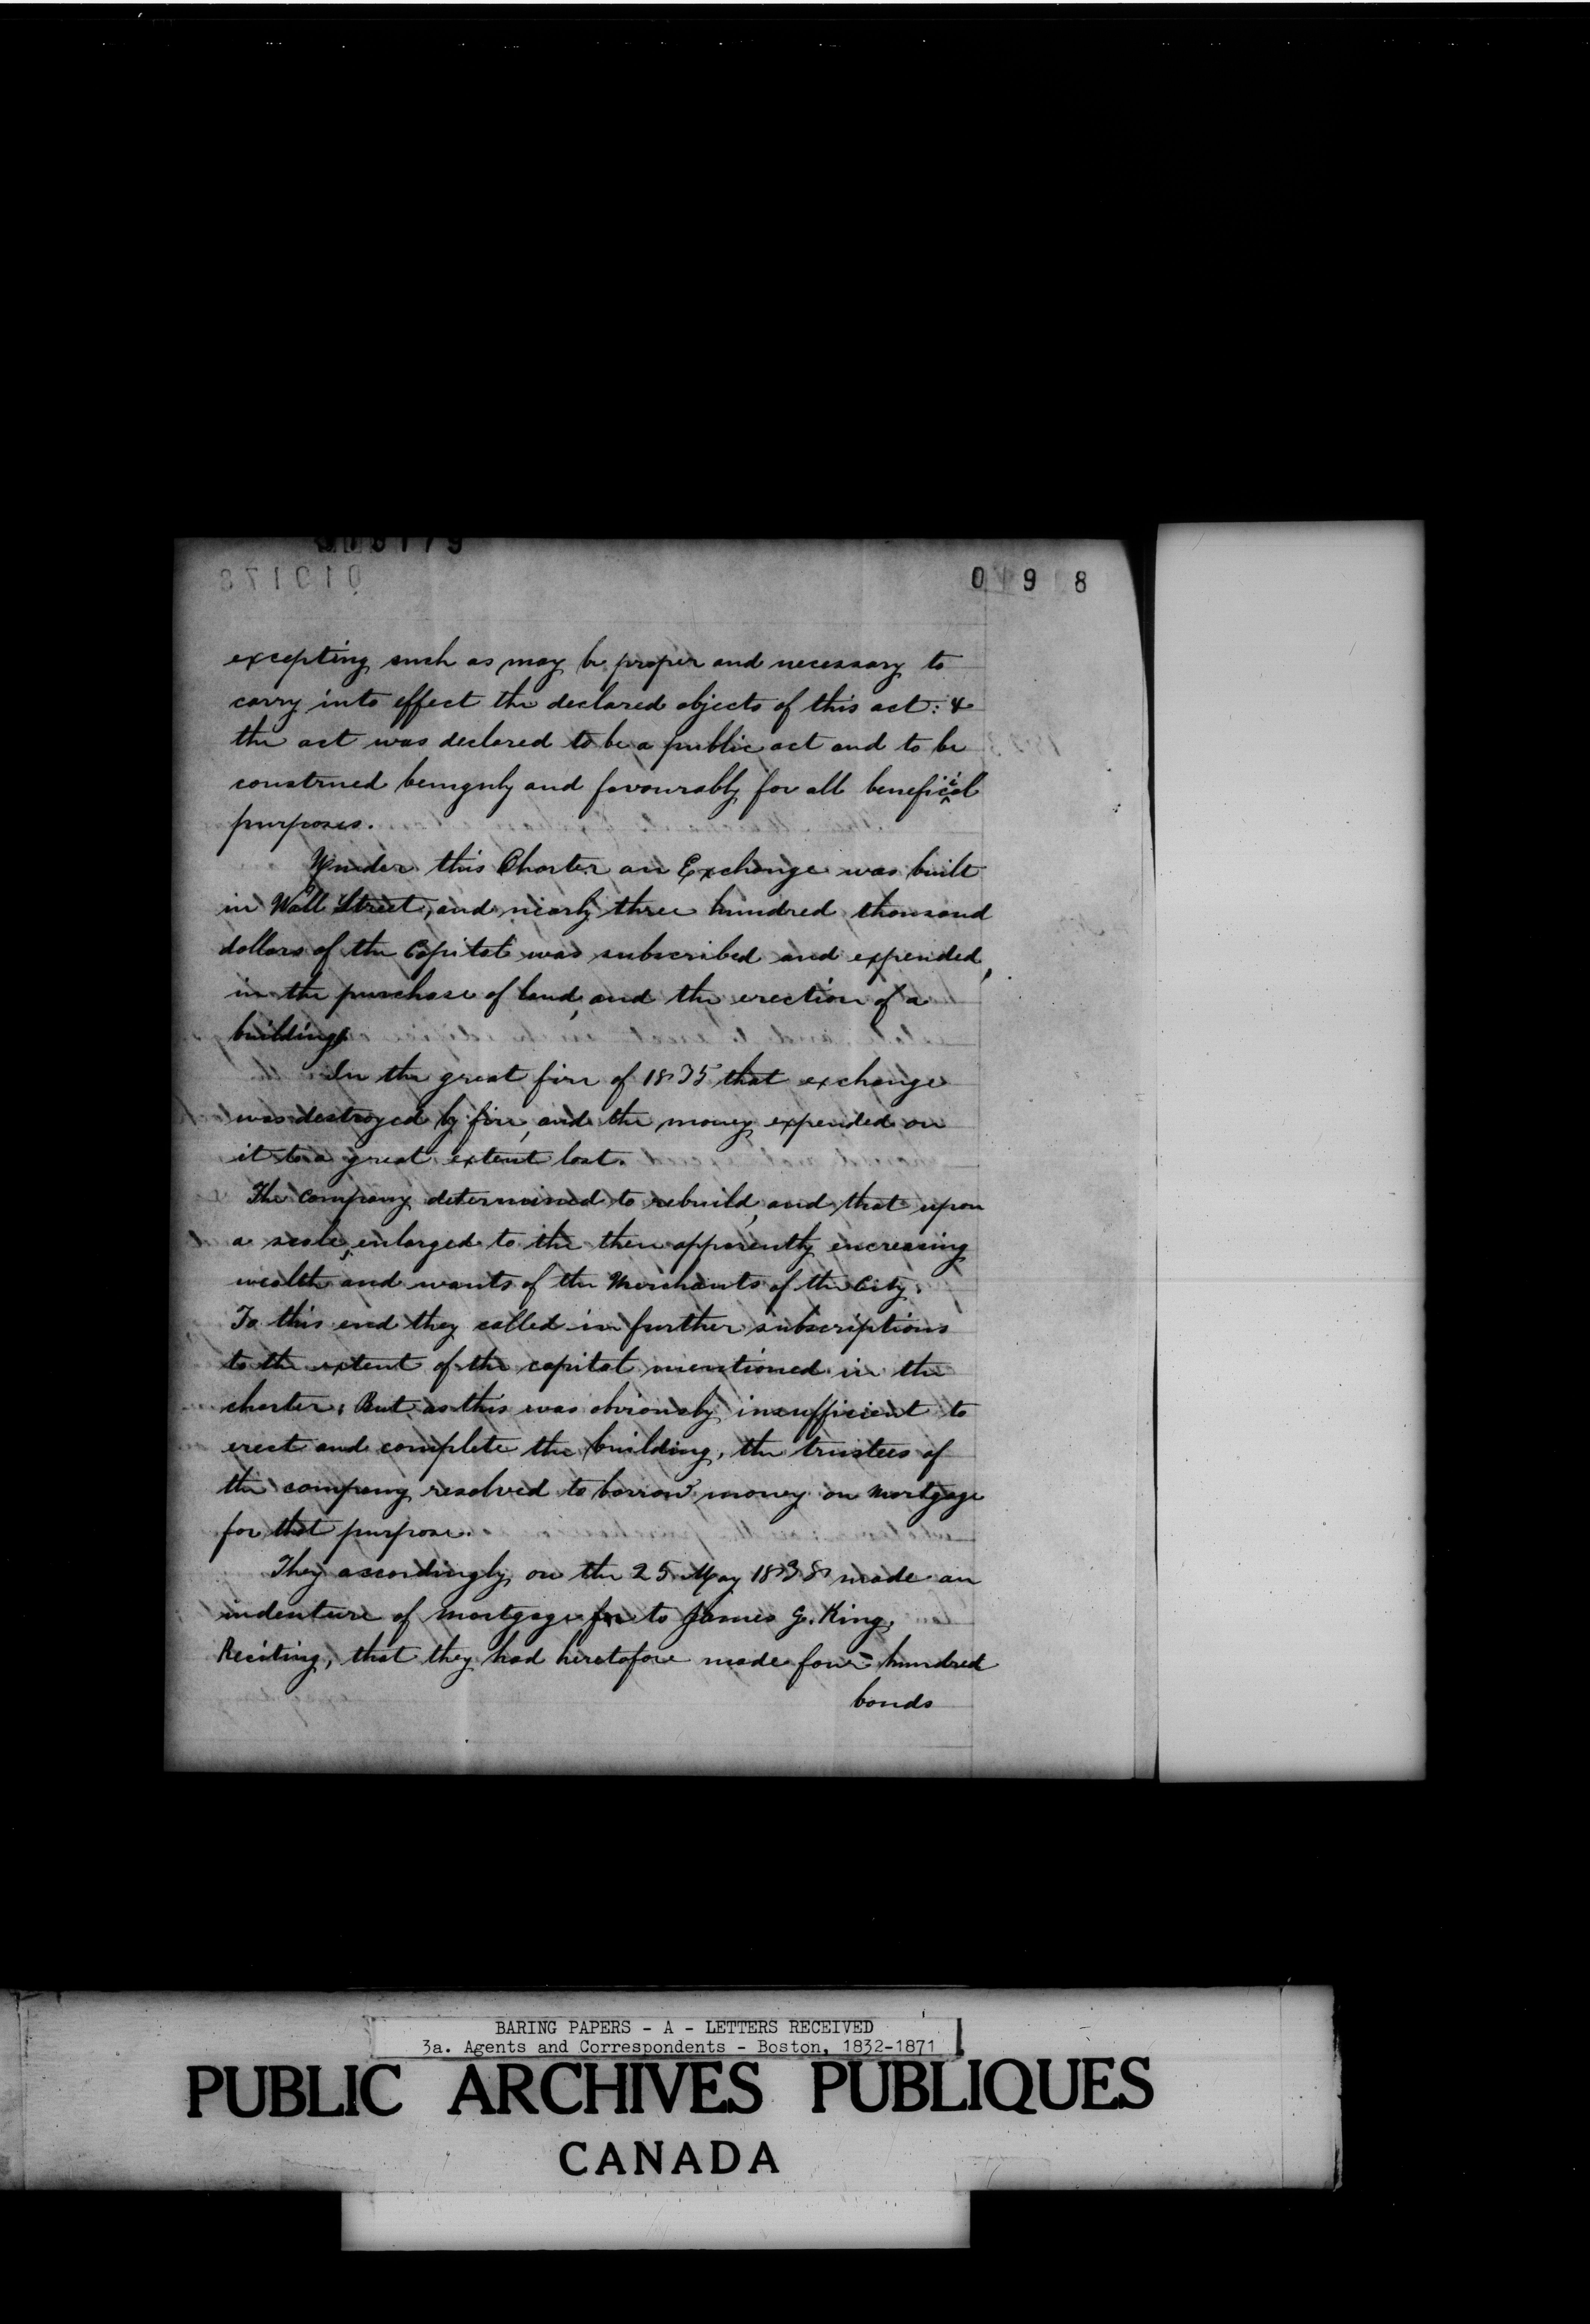 0 9 8
excepting such as may be proper and necessary to
carry into effect the declared objects of this act: &
the act was declared to be a public act and to be
construed benignly and favourably for all beneficial
purposes.
Under this Charter an Exchange was built
in Wall Street, and nearly three hundred thousand
dollars of the Capital was subscribed and expended,
in the purchase of land, and the erection of a
building
In the great fire of 1835 that exchange
was destroyed by fire, and the money expended on
it to a great extent lost.
The Company determined to rebuild, and that upon
a scale, enlarged to the then apparently encreasing
wealth and wants of the Merchants of the City.
To this end they called in further subscriptions
to the extent of the capital mentioned in the
charter: But as this was obviously insufficient to
erect and complete the building, the trustees of
the company resolved to borrow money on Mortgage
for that purpose.
They accordingly on the 25 May 1838 made an
indenture of Mortgage to James G. King,
Reciting, that they had heretofore made four hundred
bonds
BARING PAPERS - A - LETTERS RECEIVED
3a. Agents and Correspondents - Boston, 1832-1871
PUBLIC ARCHIVES PUBLIQUES
CANADA